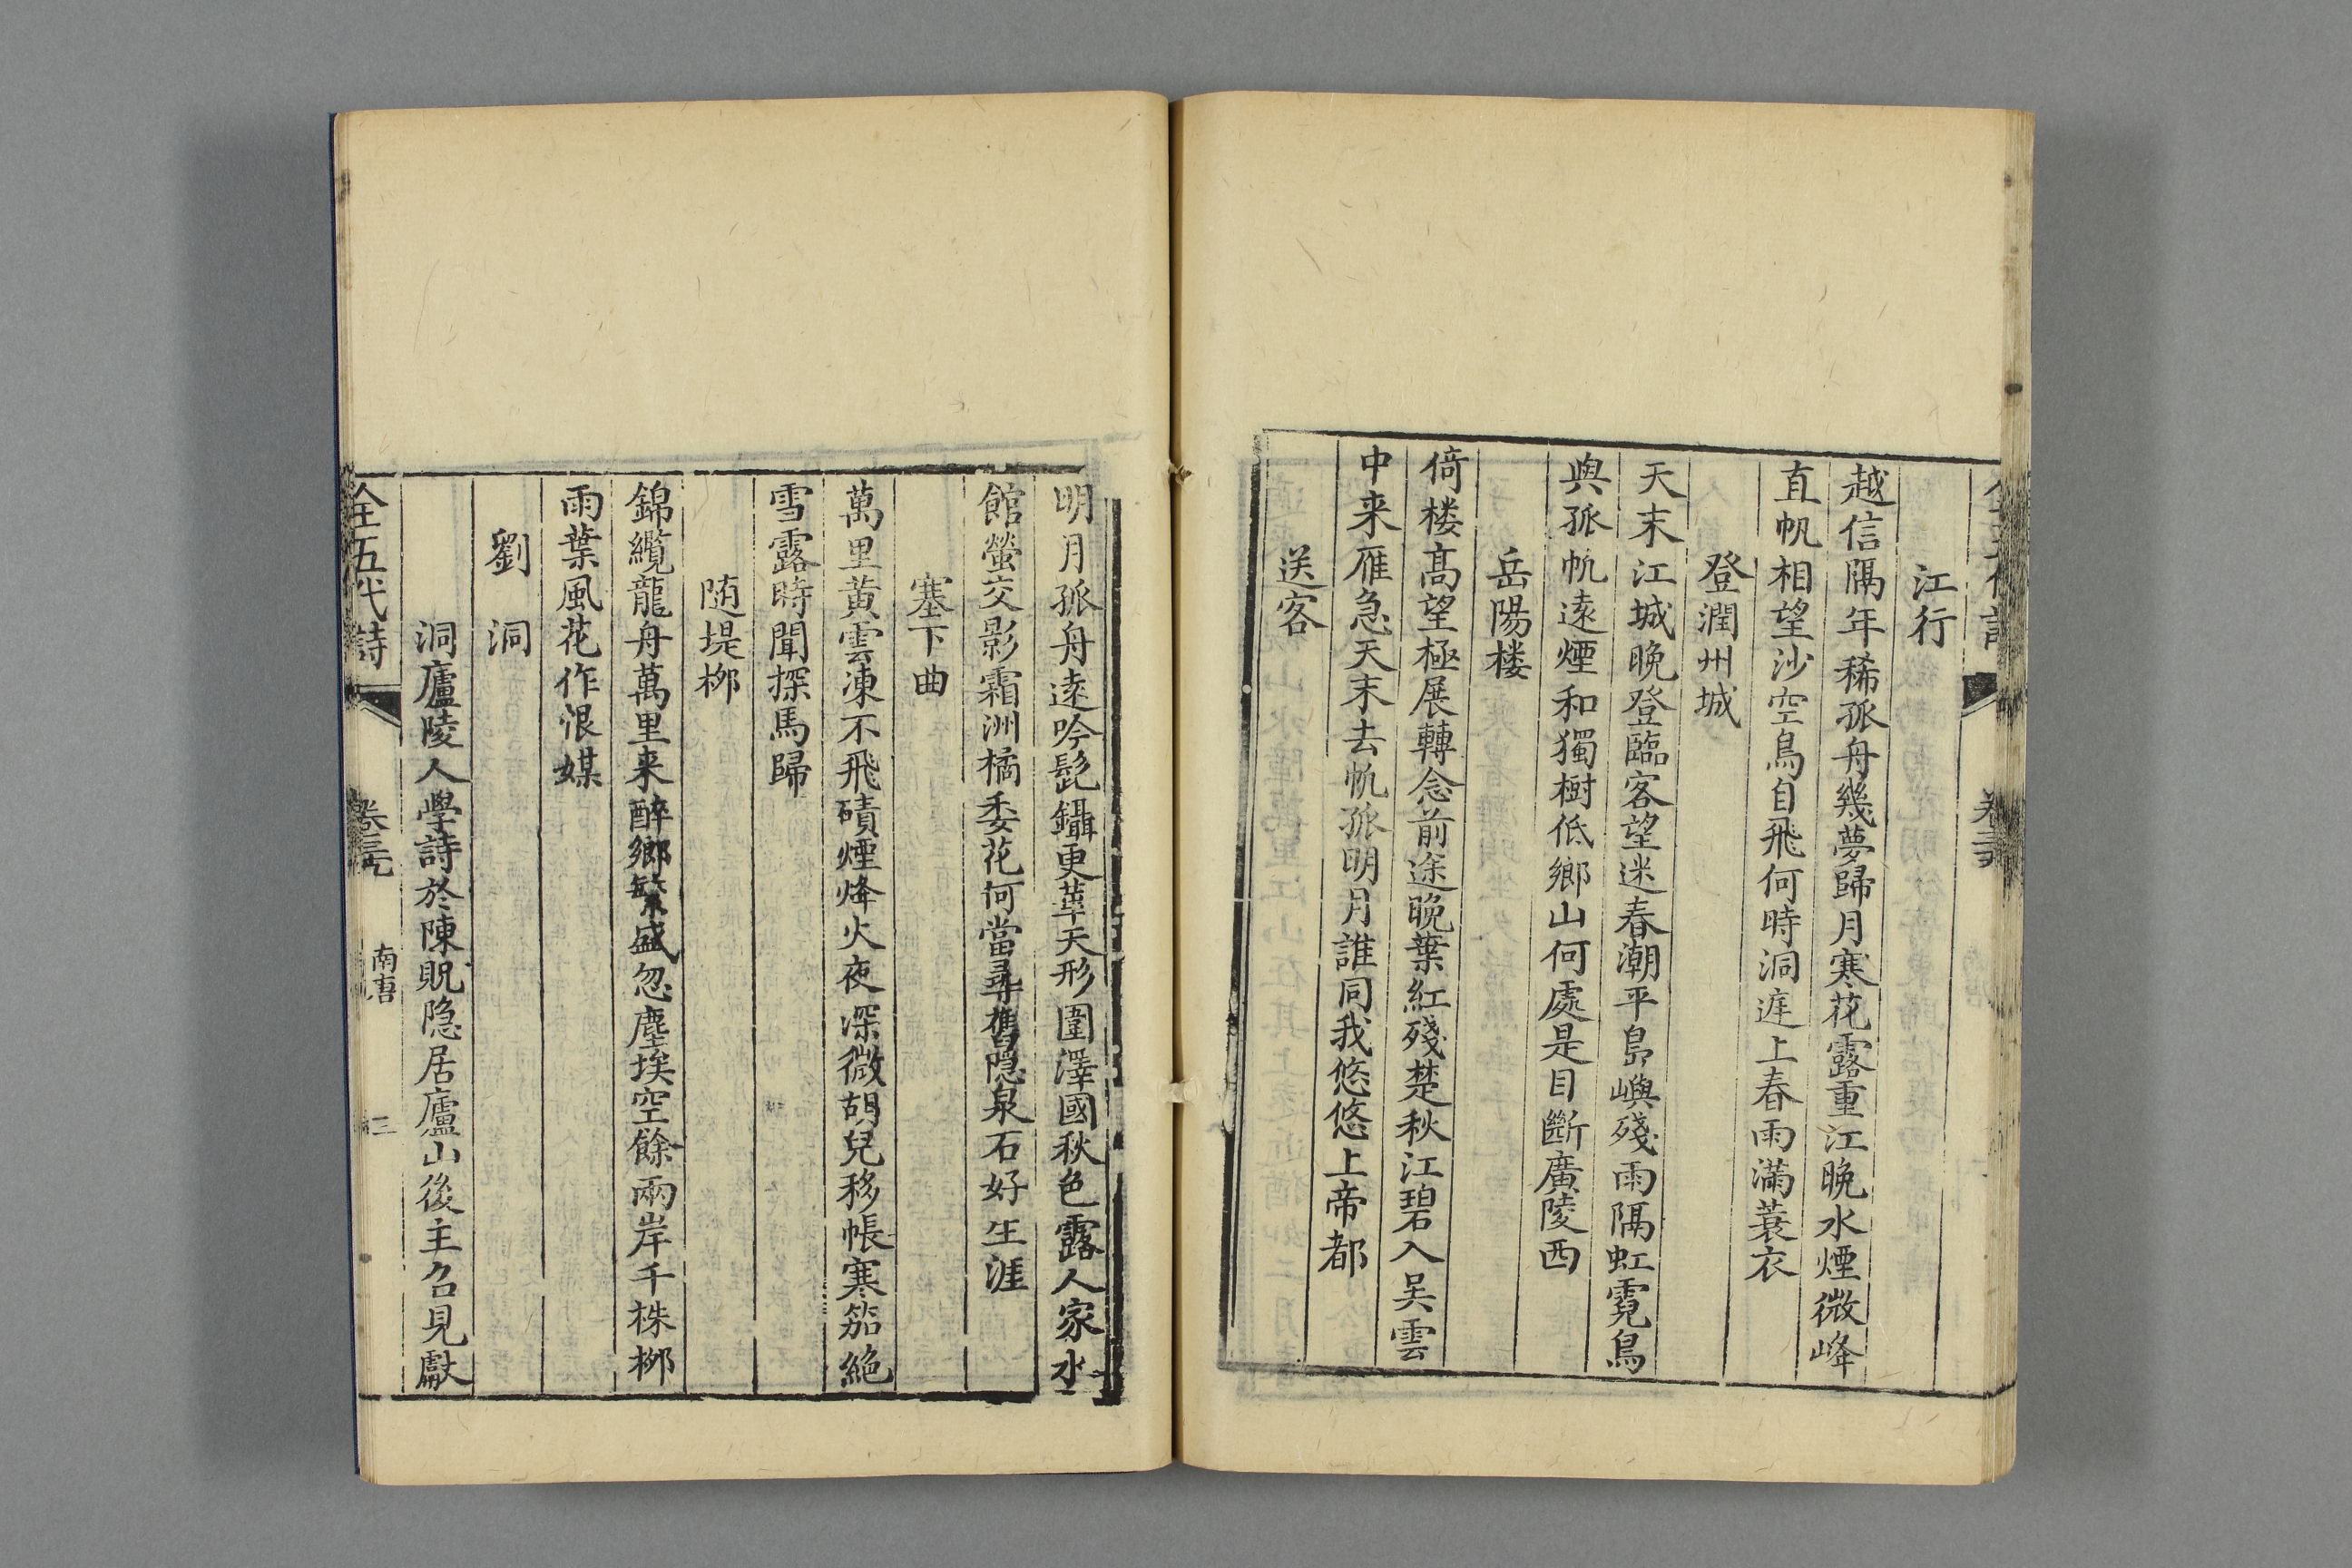 江行
越信隔年稀孤舟幾夢歸月寒花露重江晚水煙微峰
直帆相望沙空鳥自飛何時洞庭上春雨滿蓑衣
登潤州城
天末江城晚登臨客望迷春潮平島嶼殘雨隔虹霓鳥
與孤帆遠煙和獨樹低鄉山何處是目斷廣陵西
岳陽楼
倚楼高望極展轉念前途晚葉紅殘楚秋江碧入吴雲
中来雁急天末去帆孤明月誰同我悠悠上帝都
送客
明月孤舟遠吟髭鑷更華天形圍澤國秋色露人家水
館螢交影霜洲橘委花何當尋舊隐泉石好生涯
塞下曲
萬里黃雲凍不飛磧煙烽火夜深微胡兒移帳寒笳絶
雪露時聞探馬歸
随堤柳
錦纜龍舟萬里来醉鄉繁盛忽塵埃空餘兩岸千株柳
雨葉風花作恨媒
劉洞
洞廬陵人學詩於陳貺隐居廬山後主召見獻
全五代詩 南唐 三